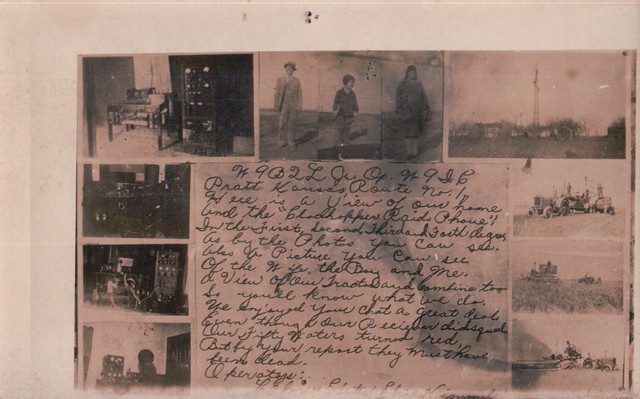 W9BZL Jr. Op. W9IC
Pratt Kansas, Route No. 1,
Here is a View of our home
And the "Clodhopper Radio Phone"!
In the First, Second, Third and Forth degree,
As by the Photo you can see.
Also a Picture you can see
Of the Wife, the Boy and Me.
A View of Our Tractor and Combine too
So you'll know what we do.
We enjoyed your chat a great deal
Even though Our Reciever did squeal
Our Fifty Waters turned red,
But by your report they must have
been dead.
Operators: